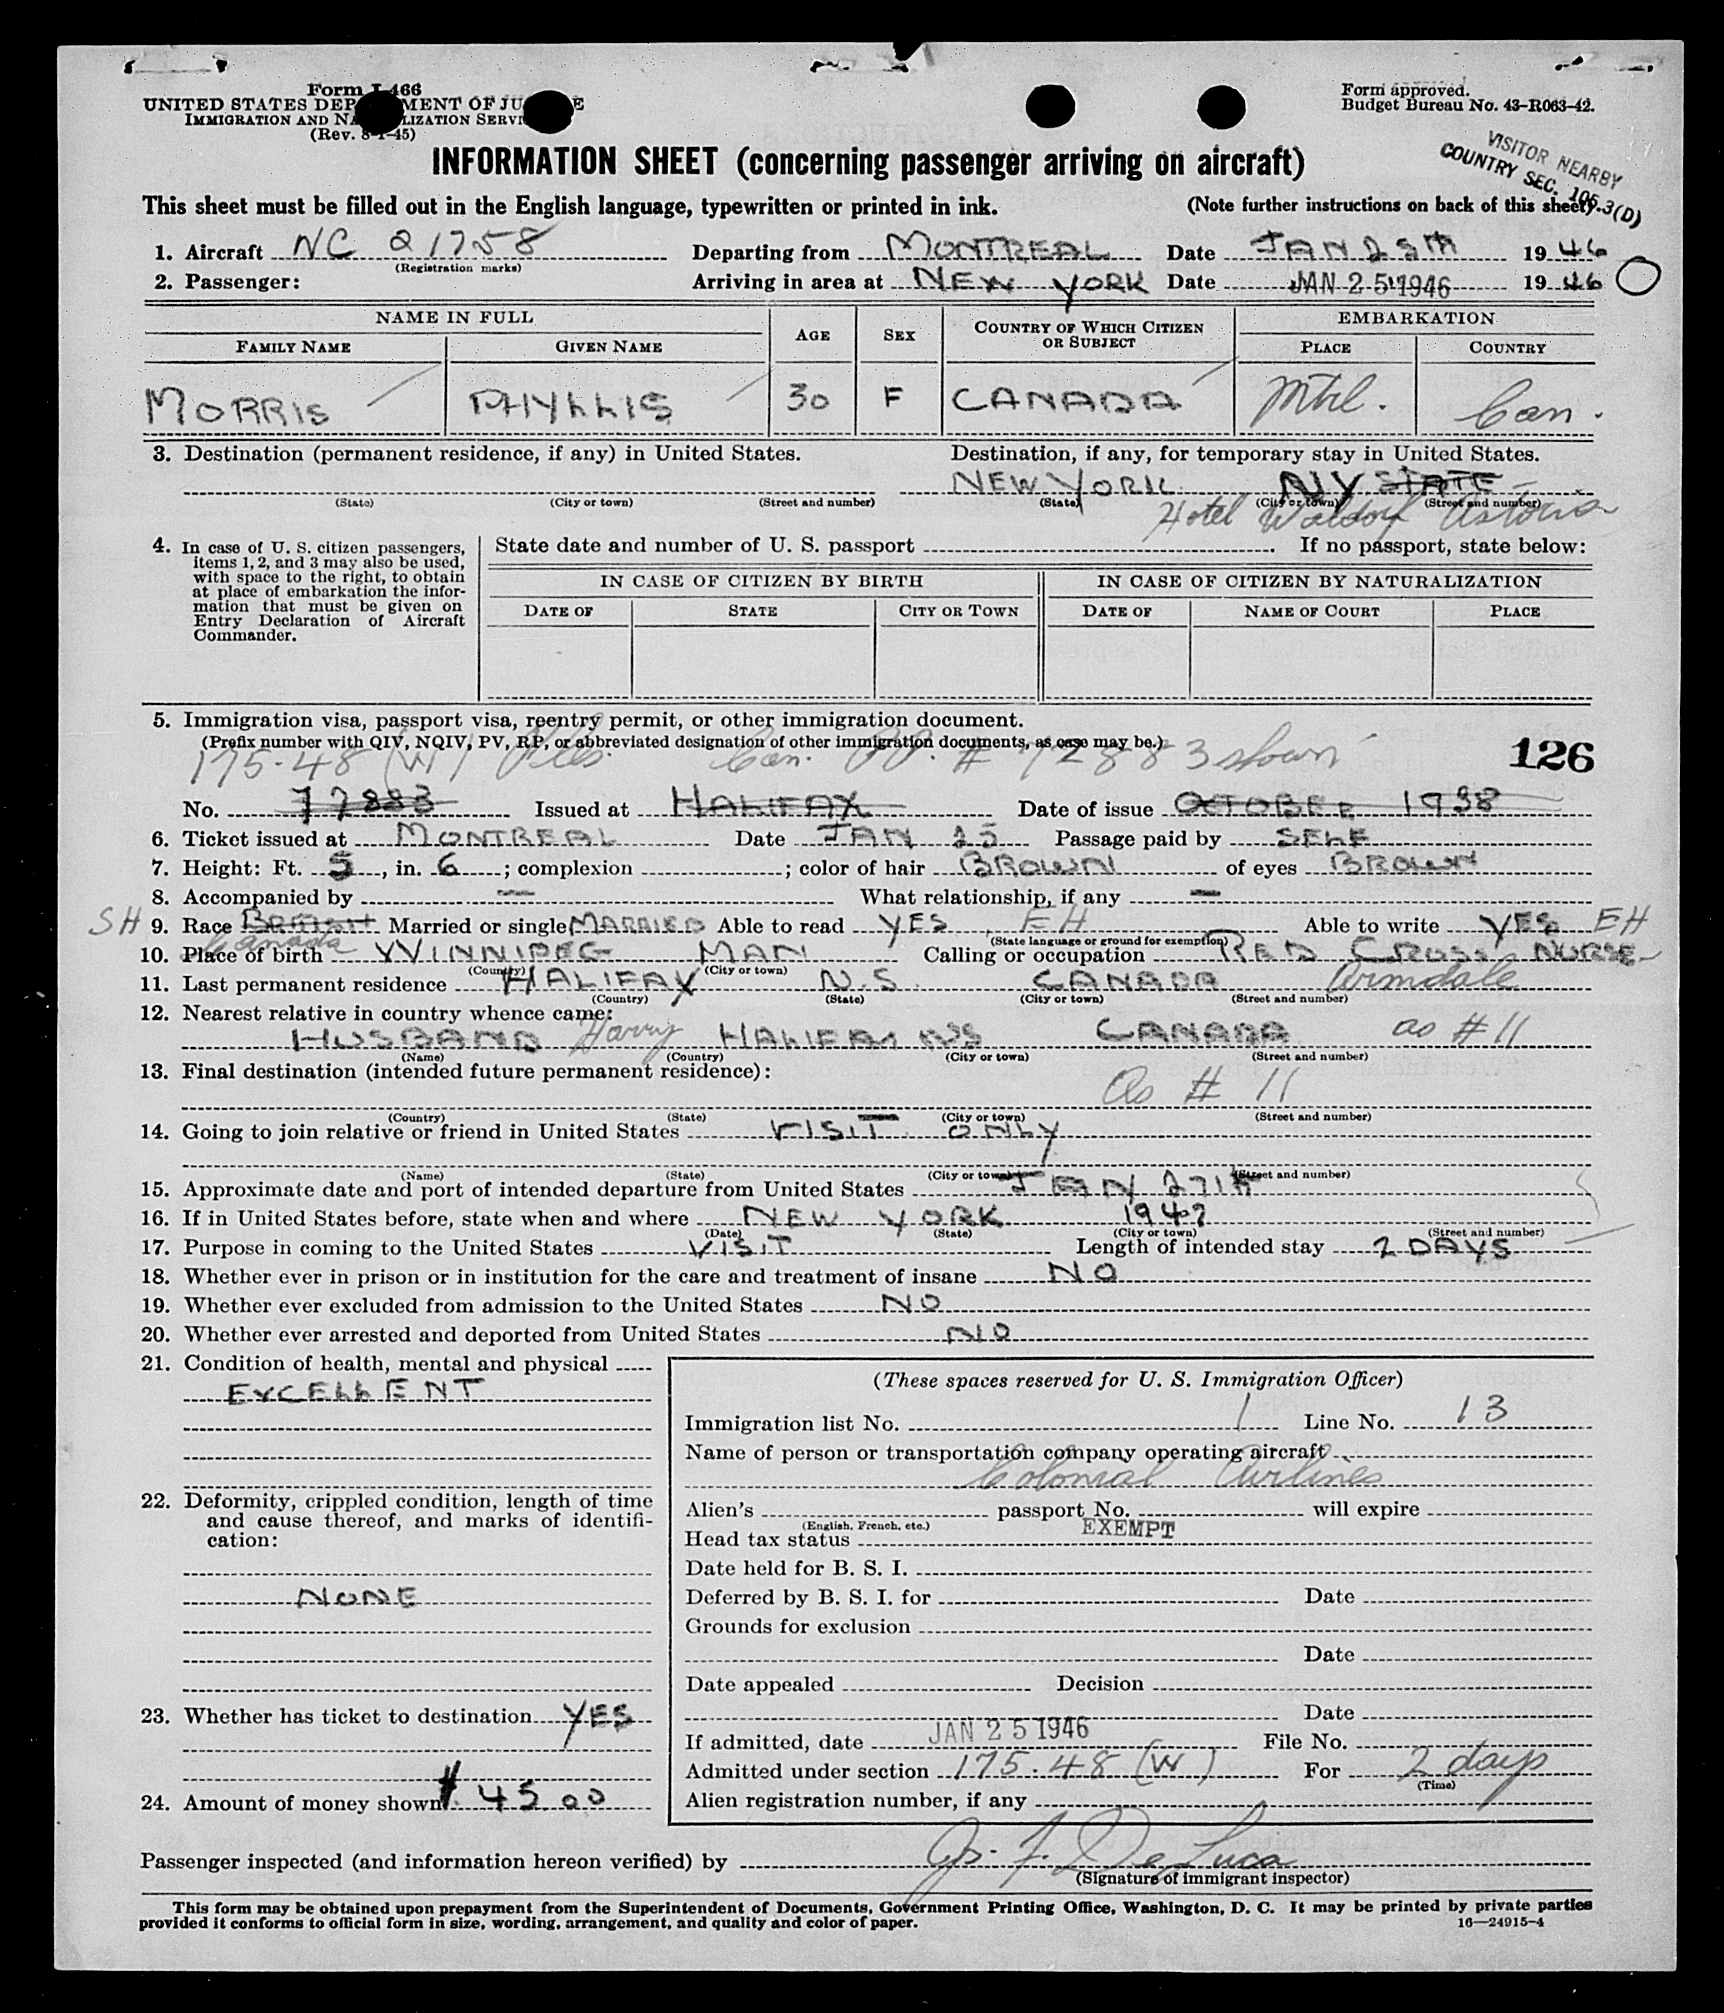 Form I-466
UNITED STATES DEPARTMENT OF JUSTICE
IMMIGRATION AND NATURALIZATION SERVICE
(Rev. 8-1-45)
Form approved.
Budget Bureau No. 43-R063-42.
VISITOR NEARBY
COUNTRY SEC. 106.3(D)
INFORMATION SHEET (concerning passenger arriving on aircraft)
This sheet must be filled out in the English language, typewritten or printed in ink. (Note further instructions on back of this sheet).
1. Aircraft NC 21758 Departing from MONTREAL Date JAN 25th 1946
(Registration marks)
2. Passenger: Arriving in area at NEW YORK Date JAN 25 1946 1946
NAME IN FULL AGE SEX COUNTRY OF WHICH CITIZEN OR SUBJECT EMBARKATION
FAMILY NAME GIVEN NAME PLACE COUNTRY
MORRIS PHYLLIS 30 F CANADA Mtrl. Can.
3. Destination (permanent residence, if any) in United States. Destination, if any, for temporary stay in United States.
NEW YORK NY STATE
(State) (City or town) (Street and number) (State) (City or town) (Street and number)
Hotel Waldorf Astoria
4. In case of U. S. citizen passengers, items 1, 2, and 3 may also be used, with space to the right, to obtain at place of embarkation the information that must be given on Entry Declaration of Aircraft Commander.
State date and number of U. S. passport . If no passport, state below:
IN CASE OF CITIZEN BY BIRTH IN CASE OF CITIZEN BY NATURALIZATION
DATE OF STATE CITY OR TOWN DATE OF NAME OF COURT PLACE
5. Immigration visa, passport visa, reentry permit, or other immigration document.
(Prefix number with QIV, NQIV, PV, RP, or abbreviated designation of other immigration documents, as case may be.)
175.48 (W) Can. PP. # 72883 shown
126
No. 77883 Issued at HALIFAX Date of issue OCTOBER 1938
6. Ticket issued at MONTREAL Date JAN 25 Passage paid by SELF
7. Height: Ft. 5, in. 6; complexion ; color of hair BROWN of eyes BROWN
8. Accompanied by — What relationship, if any —
SH 9. Race BRITISH Married or single MARRIED Able to read YES, EH Able to write YES EH
(State language or ground for exemption)
Canada
10. Place of birth WINNIPEG MAN Calling or occupation RED CROSS NURSE
(Country) (City or town)
11. Last permanent residence HALIFAX N.S. CANADA Armdale
(Country) (State) (City or town) (Street and number)
12. Nearest relative in country whence came:
HUSBAND Harry HALIFAX NS CANADA as # 11
(Name) (Country) (City or town) (Street and number)
13. Final destination (intended future permanent residence):
As # 11
(Country) (State) (City or town) (Street and number)
14. Going to join relative or friend in United States VISIT ONLY
(Name) (State) (City or town) (Street and number)
15. Approximate date and port of intended departure from United States JAN 27th
16. If in United States before, state when and where NEW YORK 1942
(Date) (State) (City or town) (Street and number)
17. Purpose in coming to the United States VISIT Length of intended stay 2 DAYS
18. Whether ever in prison or in institution for the care and treatment of insane NO
19. Whether ever excluded from admission to the United States NO
20. Whether ever arrested and deported from United States NO
21. Condition of health, mental and physical
EXCELLENT
22. Deformity, crippled condition, length of time and cause thereof, and marks of identification:
NONE
23. Whether has ticket to destination YES
24. Amount of money shown $ 45 00
(These spaces reserved for U. S. Immigration Officer)
Immigration list No. 1 Line No. 13
Name of person or transportation company operating aircraft
Colonial Airlines
Alien's passport No. will expire
(English, French, etc.)
Head tax status EXEMPT
Date held for B. S. I.
Deferred by B. S. I. for Date
Grounds for exclusion
Date
Date appealed Decision
Date
If admitted, date JAN 25 1946 File No.
Admitted under section 175.48 (W) For 2 days
(Time)
Alien registration number, if any
Passenger inspected (and information hereon verified) by Jos. F. DeLuca
(Signature of immigrant inspector)
This form may be obtained upon prepayment from the Superintendent of Documents, Government Printing Office, Washington, D. C. It may be printed by private parties
provided it conforms to official form in size, wording, arrangement, and quality and color of paper. 16—24915-4